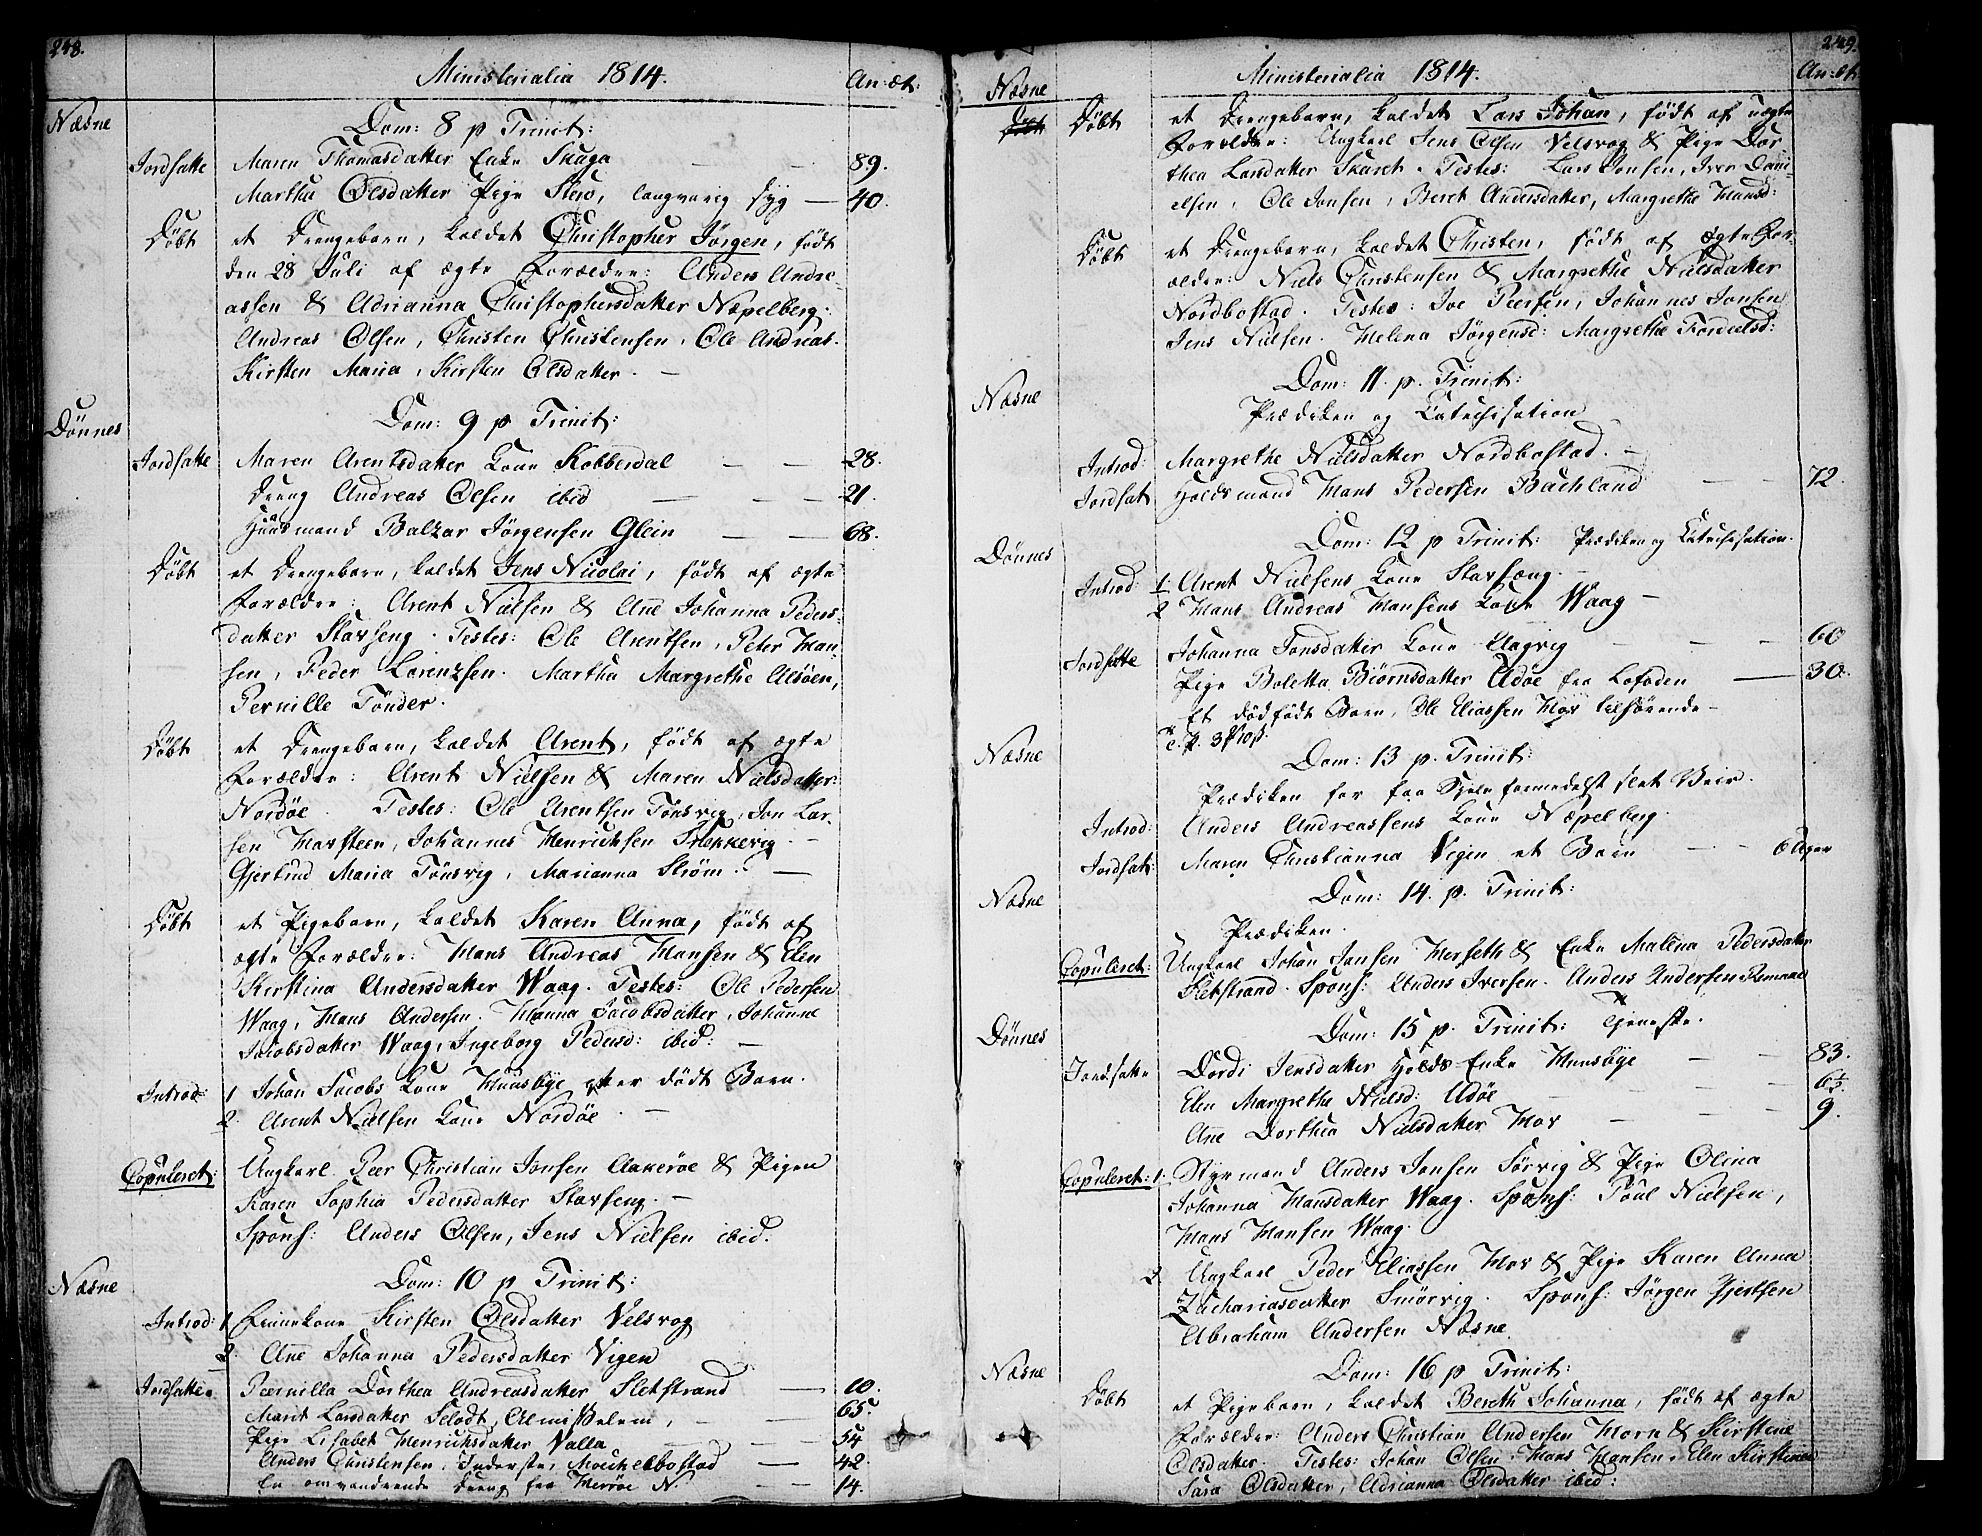 248.
Ministerialia 1814.
An: æt:
Næsne
Dom: 8 p Trinit:
Jordsatte Maren Thomasdatter Enke Skaga — 89.
Martha Olsdatter Pige langvarig syg — 40.
Døbt et Drengebarn, kaldet Christopher Jörgen, födt
den 28 Juli af ægte Forældre: Anders Andre-
assen & Adrianna Christophersdatter Næpelberg:
Andreas Olsen, Christen Christensen, Ole Andreas.
Kirsten Maria, Kirsten Olsdatter. —
Dönnes
Dom: 9 p Trinit:
Jordsatte Maren Arentsdatter Kone Kobberdal — — 28.
Dreng Andreas Olsen ibid — — — 21.
Huusmand Balzar Jörgensen Glein — — 68.
Døbt et Drengebarn, kaldet Jens Nicolai, födt af ægte
Forældre: Arent Nielsen & Ane Johanna Peders-
datter Stavseng. Testes: Ole Arentsen, Peter Han-
sen, Peder Lorentzsen. Martha Margrethe Alsöen,
Pernille Tönder.
Døbt et Drengebarn, kaldet Arent, födt af ægte
Forældre: Arent Nielsen & Maren Nielsdatter
Nordöe. Testes: Ole Arentsen Tönsvig, Jon Lar-
sen Havsteen, Johannes Henrichsen —
Gjertrud Maria Tönsvig, Marianna Ström. —
Døbt et Pigebarn, kaldet Karen Anna, födt af
ægte Forældre: Hans Andreas Hansen & Elen
Kirstina Andersdatter Waag. Testes: Ole Pedersen
Waag, Hans Andersen. Hanna Jacobsdatter, Johanne
Jacobsdatter Waag, Ingeborg Pedersd: ibid: —
Introd: 1 Johan Jacobs Kone Huusbye efter dödt Barn.
2. Arent Nielsen Kone Nordöe. —
Copuleret: Ungkarl Peer Christian Jonsen Aakeröe & Pigen
Karen Sophia Pedersdatter Stavseng. —
Spons: Anders Olsen, Jens Nielsen ibid.
Næsne
Dom: 10 p Trinit:
Introd: 1. Finnekone Kirsten Olsdatter Velsvog
2. Ane Johanna Pedersdatter Vigen
Jordsatte Peernilla Dorthea Andreasdatter Sletstrand — 10.
Marit Larsdatter — — 65.
Pige Lisabet Henrichsdatter Valla — — 54
Anders Christensen, Inderste, — 42.
En omvandrende Dreng fra Herröe N. — 14.
249.
Ministerialia 1814.
An: æt:
Næsne
Døbt et Drengebarn, kaldet Lars Johan, födt af uægte
Forældre: Ungkarl Jens Olsen Velsvog & Pige Dor-
thea Larsdatter Skaret. Testes: Lars Jonsen, Iver Dani-
elsen, Ole Jonsen, Beret Andersdatter, Margrethe Hansd:
Døbt et Drengebarn, kaldet Christen, födt af ægte For-
ældre: Niels Christensen & Margrethe Nielsdatter
Nordbostad. Testes: Joe Peersen, Johannes Jonsen,
Jens Nielsen. Helena Jörgensd: Margrethe
Næsne
Dom: 11. p. Trinit:
Prædiken og Catechisation
Introd: Margrethe Nielsdatter Nordbostad. —
Jordsat Holdsmand Hans Pedersen Bachland — — 72.
Dönnes
Dom: 12 p Trinit: Prædiken og Catechisation.
Introd: 1. Arent Nielsens Kone Stavseng. —
2 Hans Andreas Hansens Kone Waag —
Jordsatte Johanna Jonsdatter Kone — — 60
Pige Boletta Biörnsdatter Udöe fra Lofoden — 30.
Et dödfödt Barn, Ole Eliassen Hov tilhörende —
Næsne
Dom: 13 p. Trinit:
Prædiken for faa Sjele formedelst slet Veir.
Introd: Anders Andreassens Kone Næpelberg.
Jordsat: Maren Christianna Vigen et Barn — —
Næsne
Dom: 14. p. Trinit:
Prædiken.
Copuleret: Ungkarl Johan Jansen Herseth & Enke Malena Pedersdatter
Sletstrand. Spons: Anders Iversen. Anders Andersen
Dönnes
Dom: 15 p. Trinit: Tjeneste.
Jordsatte Dordi Jensdatter Holds-Enke Huusbye — — 83.
Elen Margrethe Nielsd: Udöe — — 6½
Ane Dorthea Nielsdatter Hov — — 9.
Copuleret: 1. Styrmand Anders Jonsen Sörvig & Pige Olina
Johanna Hansdatter Waag. Spons: Poul Nielsen,
Hans Hansen Waag.
2. Ungkarl Peder Eliassen Hov & Pige Karen Anna
Zachariasdatter Smörvig. Spons: Jörgen Gjertsen
Abraham Andersen Næsne.
Næsne
Dom: 16 p Trinit:
Døbt et Pigebarn, kaldet Bereth Johanna, födt af ægte
Forældre: Anders Christian Andersen Horn & Kirstene
Olsdatter. Testes: Johan Olsen, Hans Hansen. Elen Kirstina
Sara Olsdatter, Adrianna Olsdatter ibid: